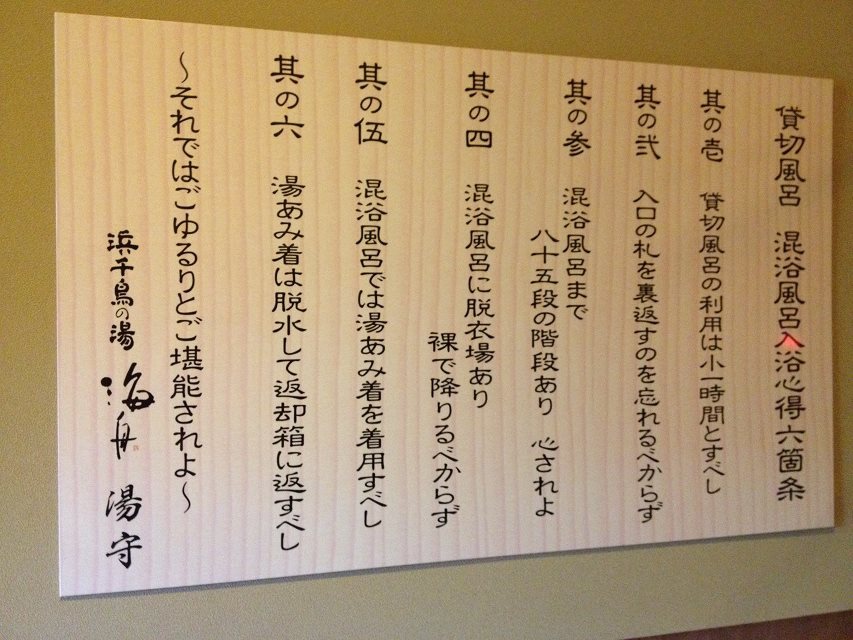 貸切風呂 混浴風呂入浴心得六箇条
其の壱 貸切風呂の利用は小一時間とすべし
其の弐 入口の札を裏返すのを忘れるべからず
其の参 混浴風呂まで
八十五段の階段あり 心されよ
其の四 混浴風呂に脱衣場あり
裸で降りるべからず
其の伍 混浴風呂では湯あみ着を着用すべし
其の六 湯あみ着は脱水して返却箱に返すべし
～それではごゆるりとご堪能されよ～
浜千鳥の湯 海舟 湯守